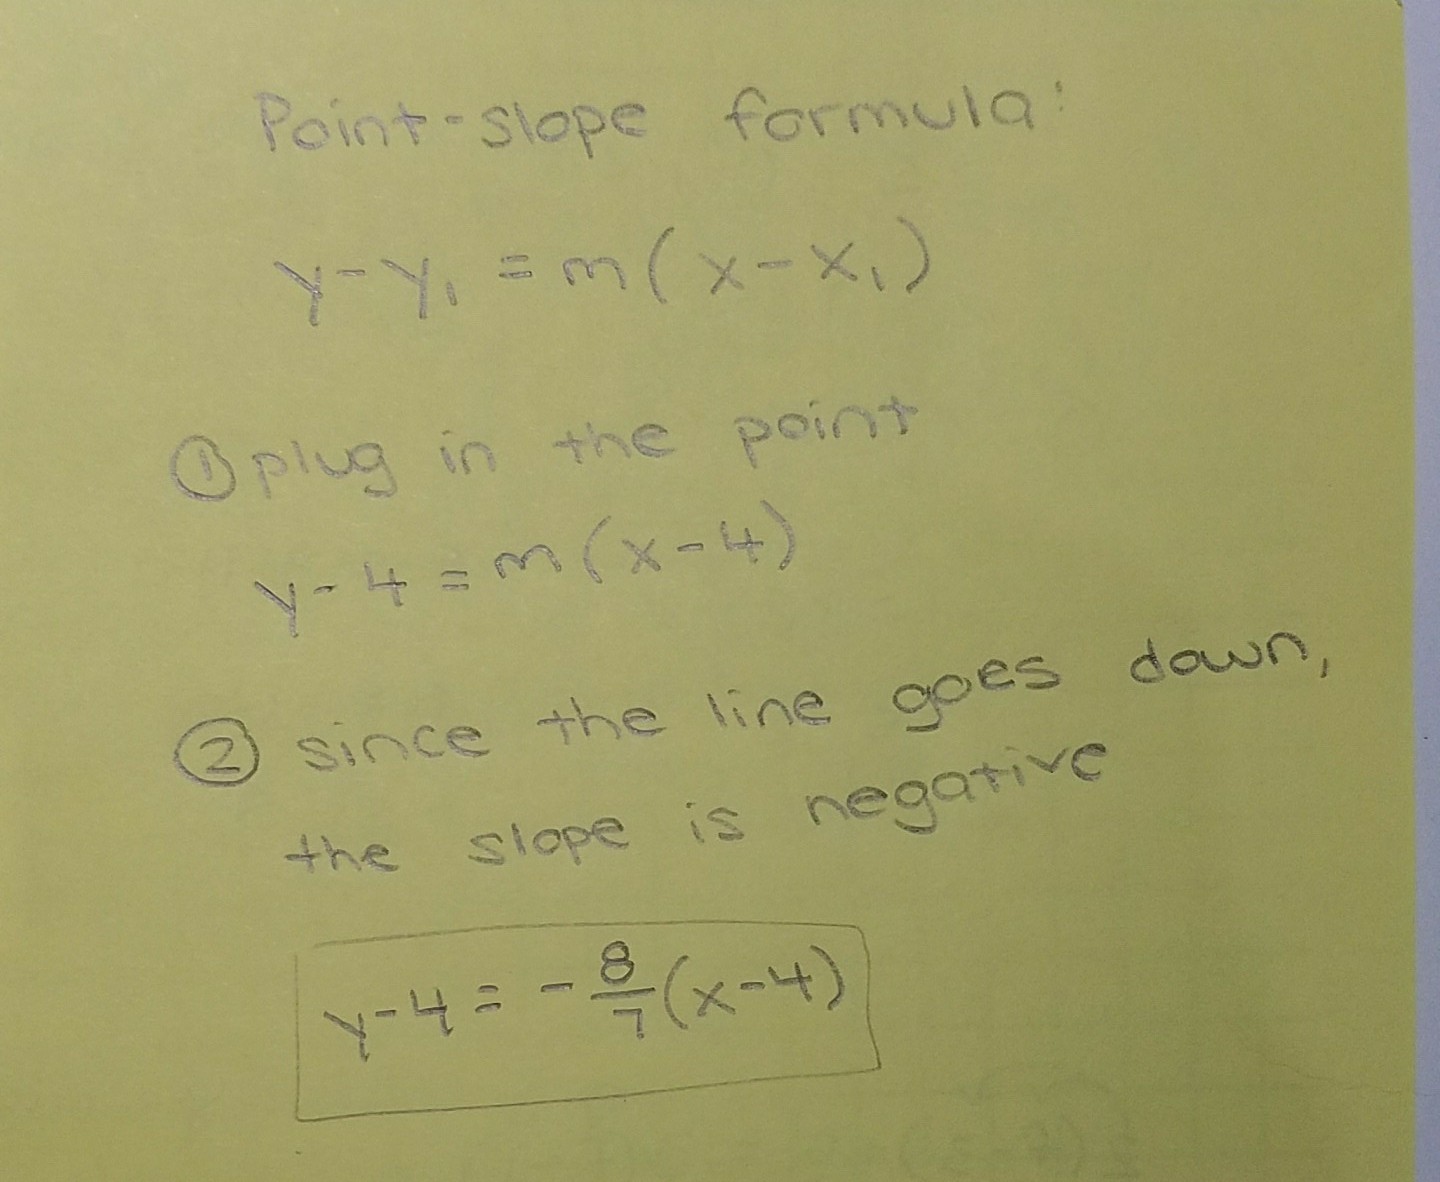 Point-slope formula:
y-y₁ = m(x-x₁)
① plug in the point
y-4 = m(x-4)
② since the line goes down,
the slope is negative
y-4 = -8/7(x-4)